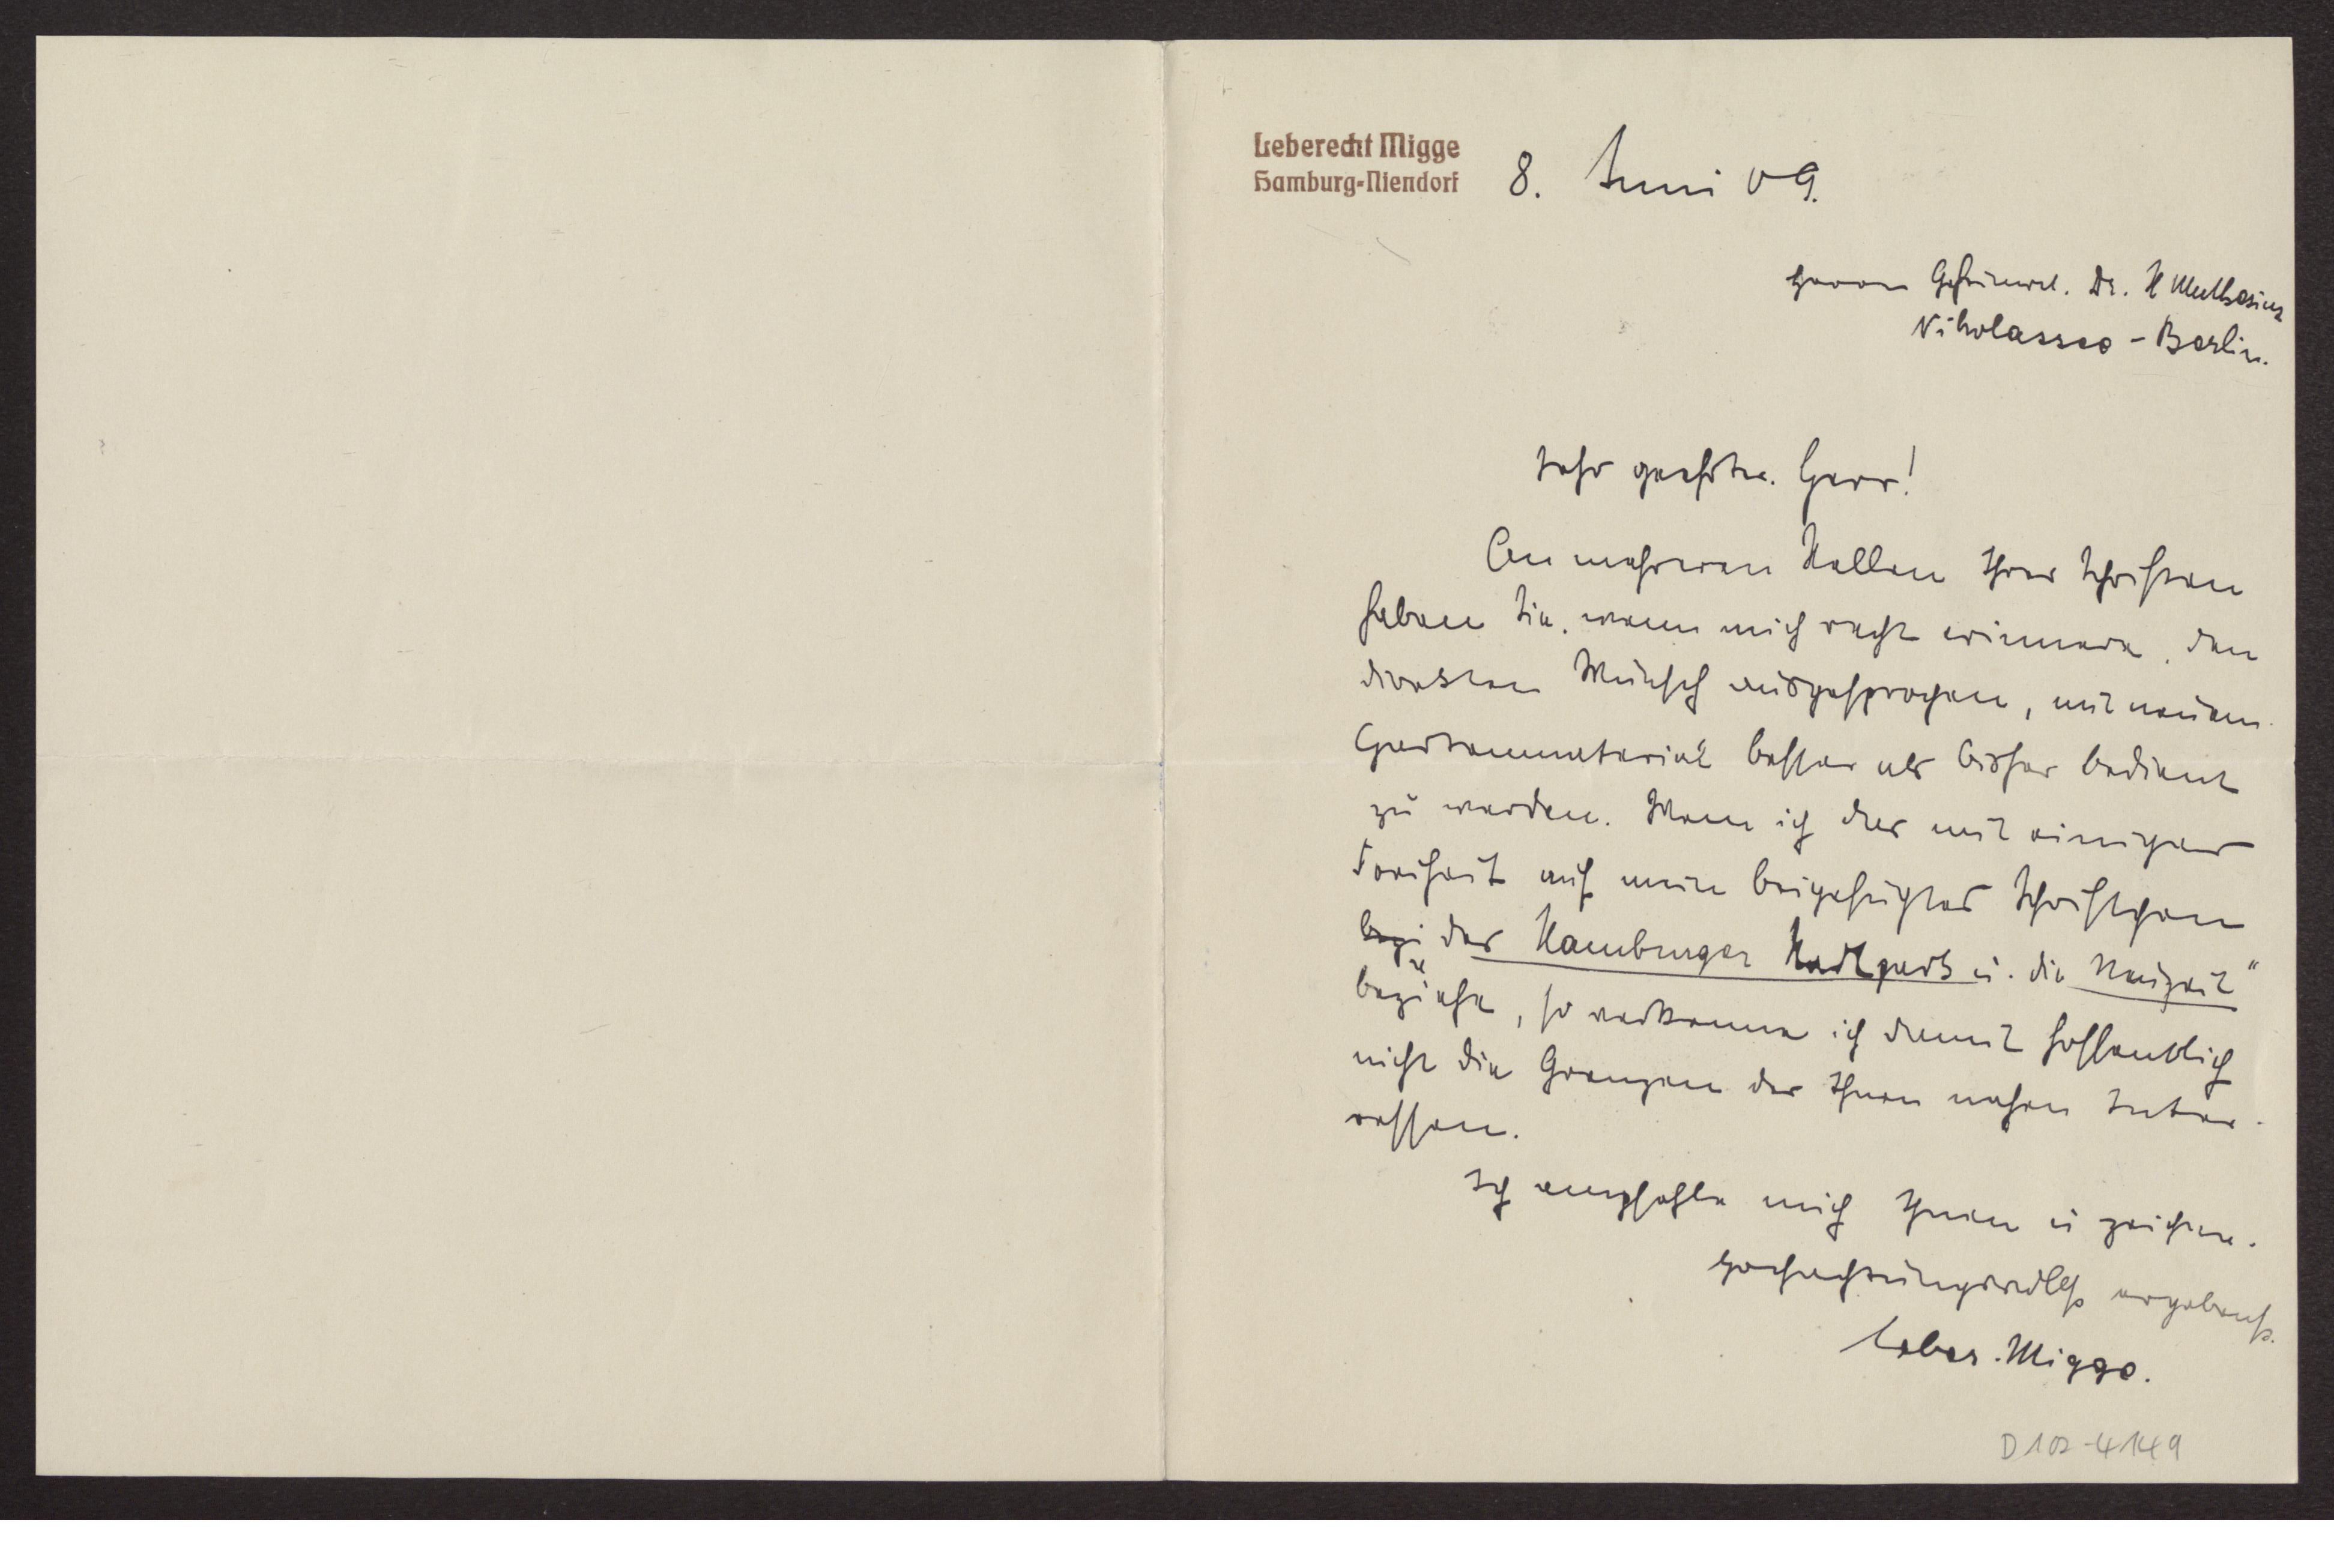 Leberecht Migge
Hamburg-Niendorf
8. Juni 09.
Herrn Geheimrat. Dr. H Muthesius
Nikolassee - Berlin.
Sehr geehrter. Herr!
An mehreren Stellen Ihrer Schriften
haben Sie, wenn mich recht erinnere, den
direkten Wunsch ausgesprochen, mit neuem
Gartenmaterial besser als bisher bedient
zu werden. Wenn ich das mit einiger
Freiheit auf mein beigefügtes Schriftchen
bezi der Hamburger Stadtpark u. die Neuzeit"
beziehe, so verkenne ich damit hoffentlich
nicht die Grenzen der Ihnen nahen Inter-
essen.
Ich empfehle mich Ihnen u zeichne.
Hochachtungsvollst ergebenst.
Leber. Migge.
D 102-4149